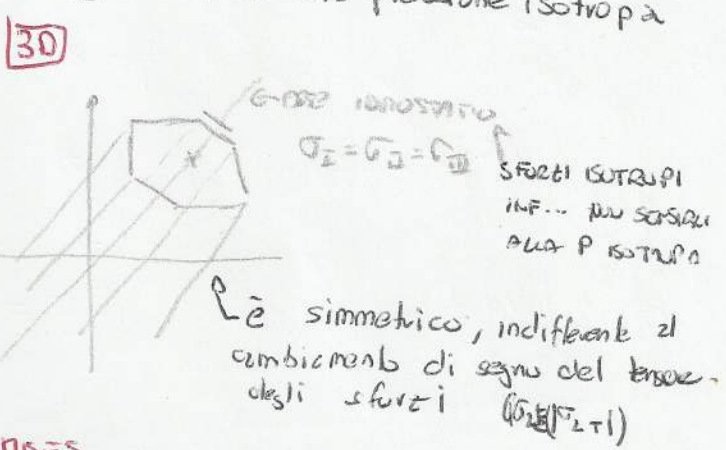 pressione isotropa
3D
ASSE IDROSTATICO
σI = σII = σIII
SFORZI ISOTROPI
INF... NON SENSIBILI
ALLA P ISOTROPA
è simmetrico, indifferente al
cambiamento di segno del tensore
degli sforzi